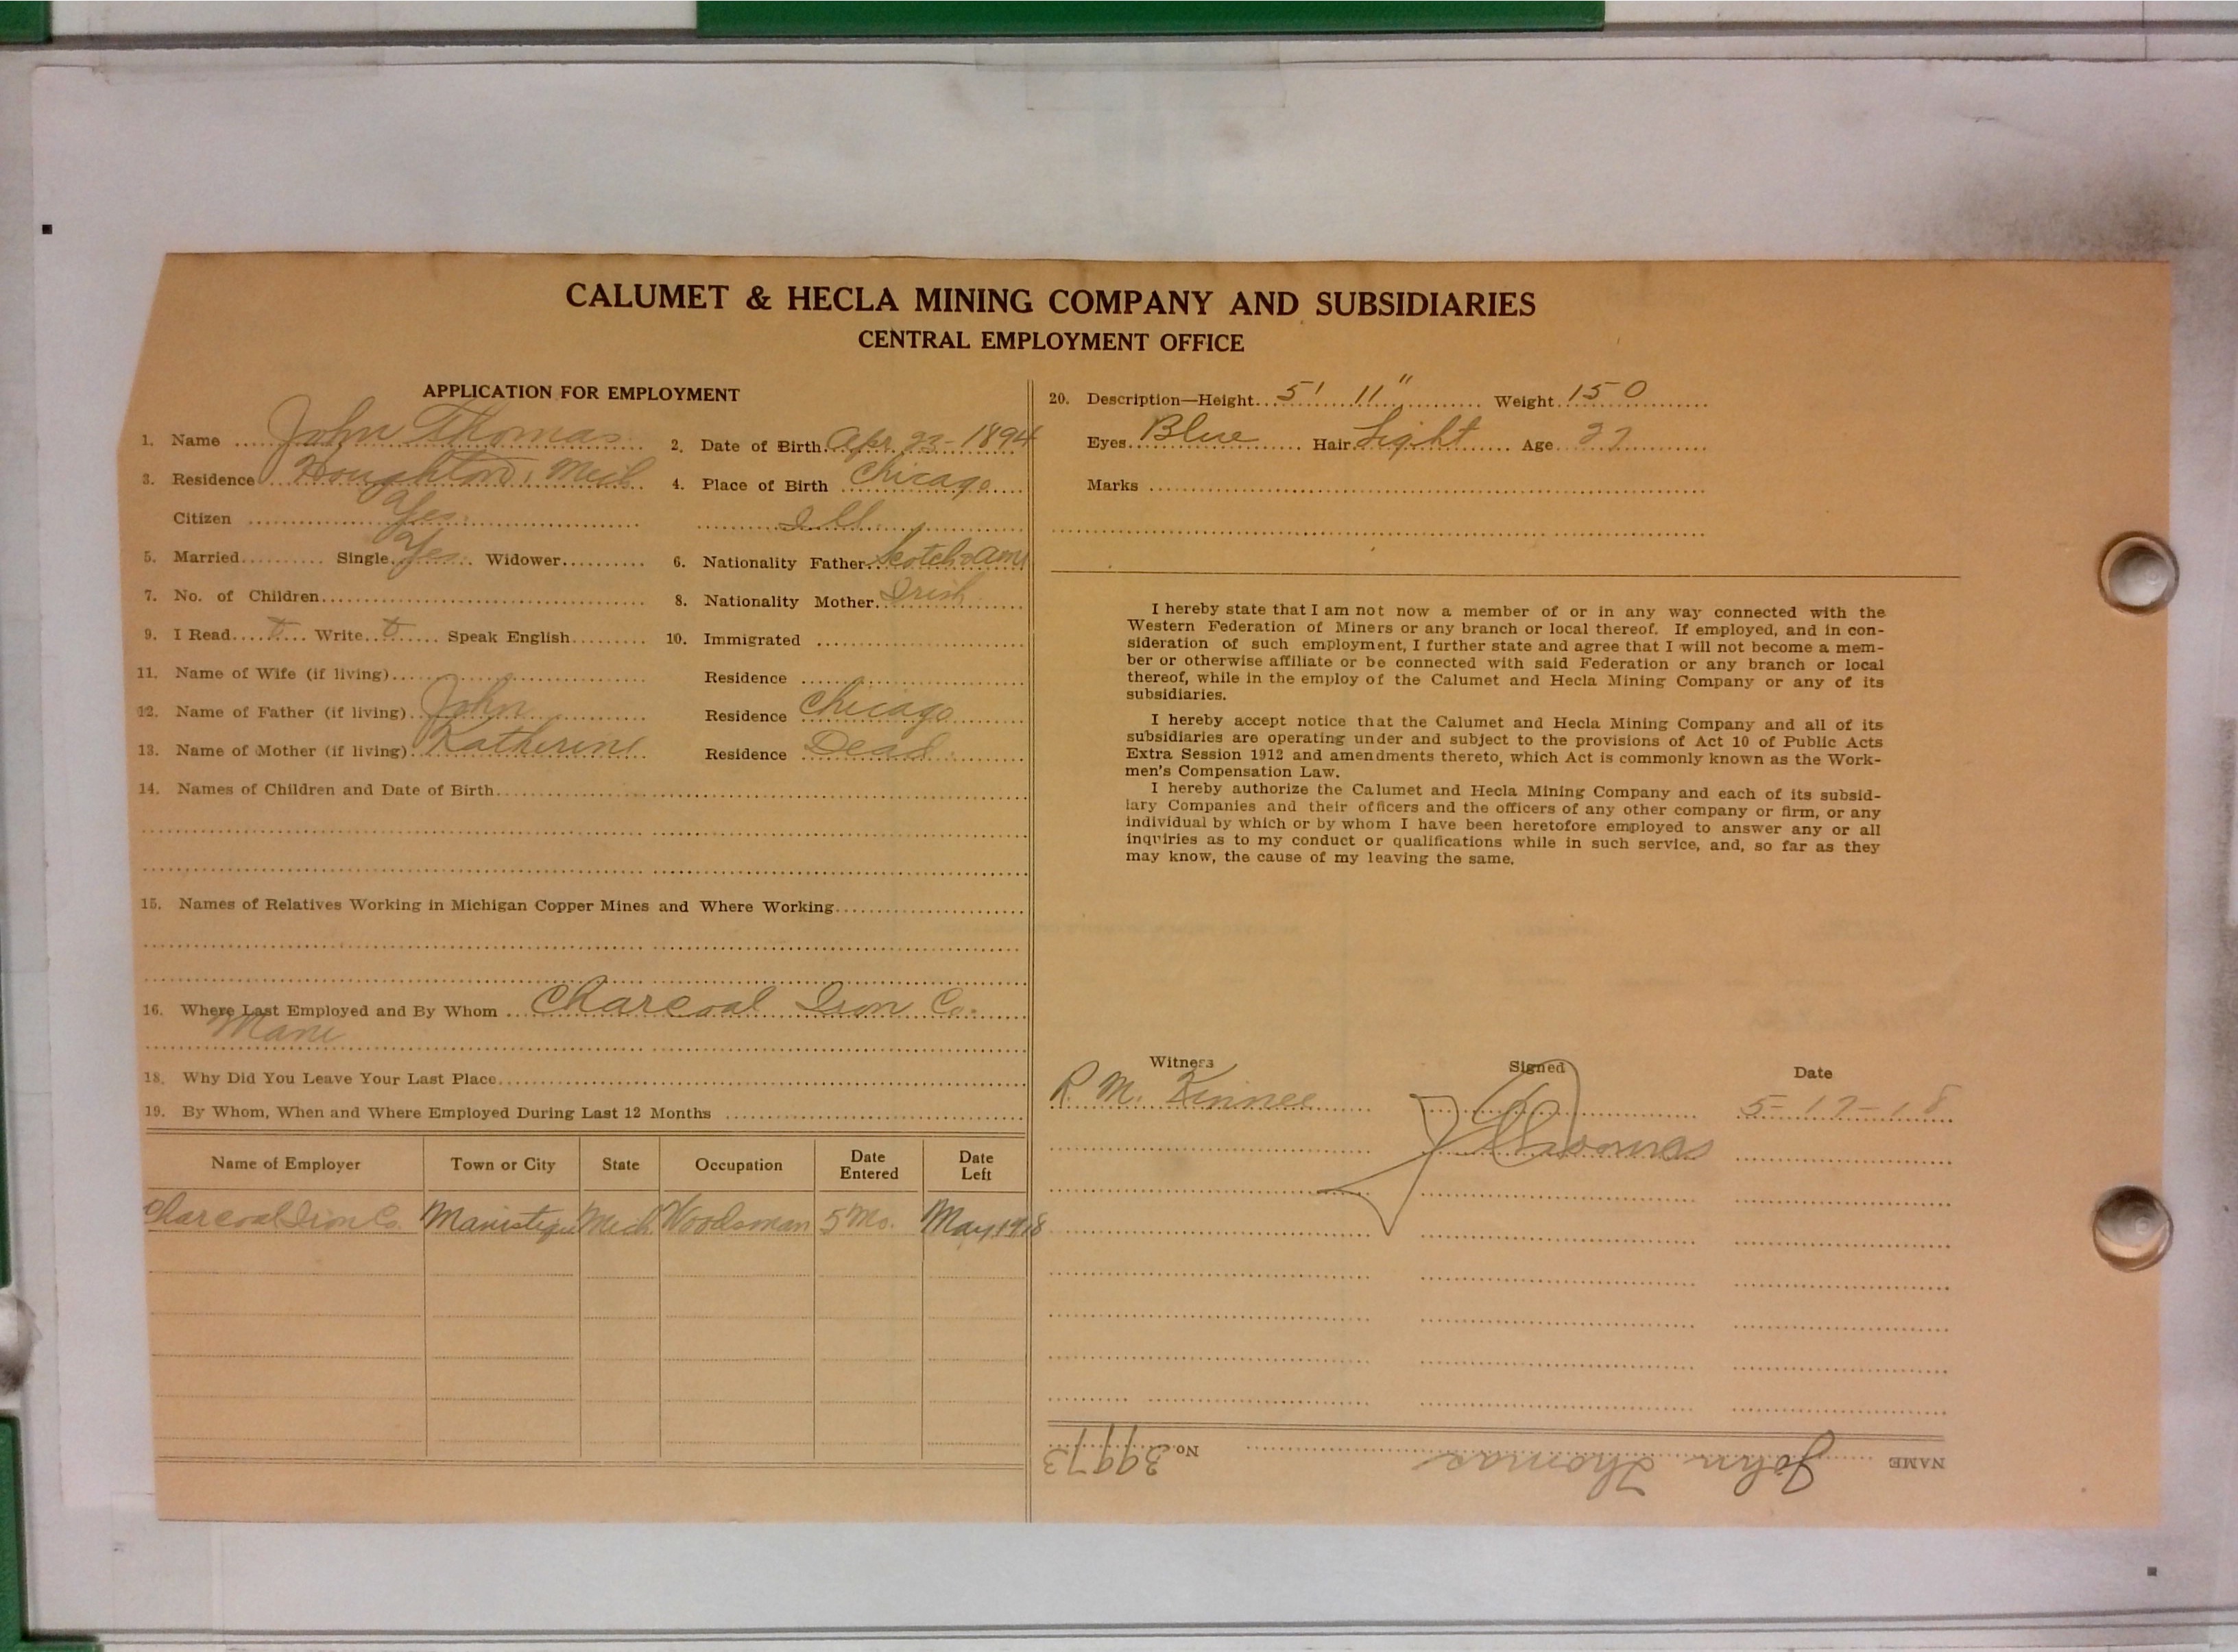 CALUMET & HECLA MINING COMPANY AND SUBSIDIARIES
CENTRAL EMPLOYMENT OFFICE
APPLICATION FOR EMPLOYMENT
1. Name John Thomas 2. Date of Birth Apr 23-1894
3. Residence Houghton, Mich 4. Place of Birth Chicago
Citizen Yes. Ill.
5. Married Single Yes. Widower 6. Nationality Father Scotch
7. No. of Children 8. Nationality Mother Irish
9. I Read Write Speak English 10. Immigrated
11. Name of Wife (if living) Residence
12. Name of Father (if living) John Residence Chicago
13. Name of Mother (if living) Katherine Residence Dead.
14. Names of Children and Date of Birth
15. Names of Relatives Working in Michigan Copper Mines and Where Working
16. Where Last Employed and By Whom Charcoal Iron Co.
18. Why Did You Leave Your Last Place
19. By Whom, When and Where Employed During Last 12 Months
Name of Employer Town or City State Occupation Date Entered Date Left
Charcoal Iron Co. Manistique Mich. Woodsman 5 Mo. May 1918
20. Description—Height 5' 11" Weight 150
Eyes Blue Hair Light Age
Marks
I hereby state that I am not now a member of or in any way connected with the
Western Federation of Miners or any branch or local thereof. If employed, and in con-
sideration of such employment, I further state and agree that I will not become a mem-
ber or otherwise affiliate or be connected with said Federation or any branch or local
thereof, while in the employ of the Calumet and Hecla Mining Company or any of its
subsidiaries.
I hereby accept notice that the Calumet and Hecla Mining Company and all of its
subsidiaries are operating under and subject to the provisions of Act 10 of Public Acts
Extra Session 1912 and amendments thereto, which Act is commonly known as the Work-
men's Compensation Law.
I hereby authorize the Calumet and Hecla Mining Company and each of its subsid-
iary Companies and their officers and the officers of any other company or firm, or any
individual by which or by whom I have been heretofore employed to answer any or all
inquiries as to my conduct or qualifications while in such service, and, so far as they
may know, the cause of my leaving the same.
Witness Signed Date
R. M. Kinnee 5-17-18
J Thomas
NAME John Thomas No. 39973